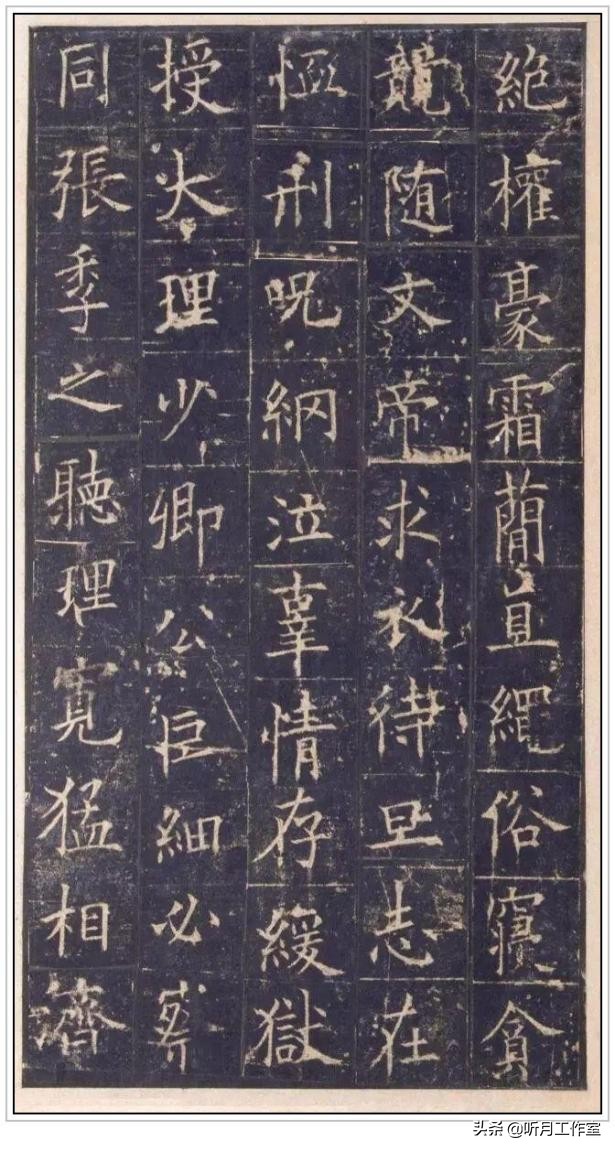 絶權豪霜簡直繩俗寢貪
競随文帝求衣待旦志在
恤刑呪網泣辜情存緩獄
授大理少卿公巨細必察
同張季之聽理寬猛相濟
头条 @听月工作室